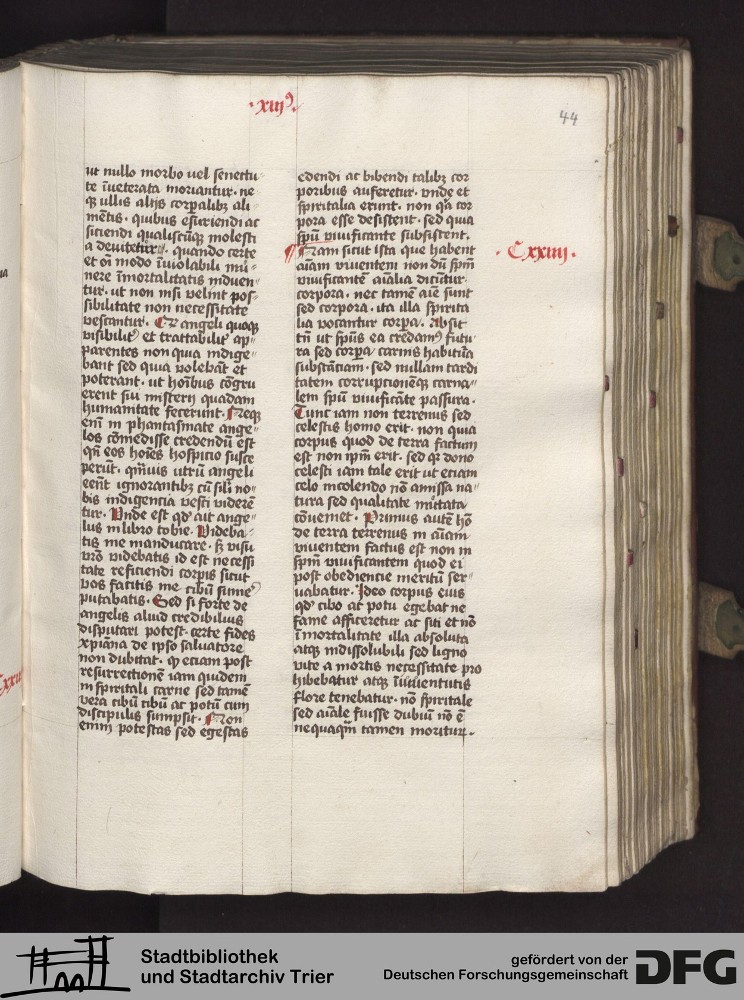 ·xiijꝰ·
44
ut nullo morbo uel senectu
te īueterata moriantur· ne
qꝫ ullis alijs corꝑalibꝫ ali
mētis· quibus esuriendi ac
siciendi qualiscūqꝫ molesti
a deuitetur· quando certe
et oī modo īuiolabili mu
nere īmortalitatis induen
tur· ut non nisi velint pos
sibilitate non necessitate
vescantur· angeli quoqꝫ
visibilitꝰ et trattabilitꝰ ap
parentes non quia indige
bant sed qua volebāt et
poterant· ut hoībus cōgru
erent sui misterij quadam
humanitate fecerunt· Neqꝫ
enī in phantasmate ange
los comedisse credendū est
qn̄ eos hoīes hospicio susce
perūt· qm̄uis utrū angeli
eēnt ignorantibꝫ cū sili no
bis indigencia vesti viderē
tur· Vnde est qd̓ ait ange
lus in libro tobie· Videba
tis me manducare· sꝫ visu
vr̄o videbatis id est necessi
tate reficiendi corꝑis sicut
vos facitis me cibū sume
putabatis· Sed si forte de
angelis aliud credibilius
disputari potest· certe fides
xp̄iana de ipso saluatore
non dubitat· ꝙ eciam post
resurrectionē iam quidem
in spiritali carne sed tamē
vera cibū cibū ac potū cum
discipulis sumpsit· Non
enim potestas sed egestas
edendi ac bibendi talibꝫ cor
poribus auferetur· vnde et
spiritalia erunt· non qa cor
pora esse desistent· sed quia
spū viuificante subsistent·
Nam sicut ista que habent
·Cxxiiij·
aīam viuentem nondū spm̄
viuificantē aīalia dicūtur
corpora· nec tamē aīe sunt
sed corpora· ita illa spirita
lia vocantur corꝑa· Absit
tn̄ ut spūs ea credamꝰ futu
ra sed corꝑa carnis habitura
substāciam· sed nullam tardi
tatem corruptionēqꝫ carna
lem spū viuificāte passura·
Tunc iam non terrenus sed
celestis homo erit· non quia
corpus quod de terra factum
est non ipm̄ erit· sed qꝛ dono
celesti iam tale erit ut eciam
celo incolendo nō amissa na
tura sed qualitate mutata
cōueniet· Primus autē hō
de terra terrenus in aīam
viuentem factus est non in
spm̄ viuificantem quod ei
post obediencie meritū ser
uabatur· Ideo corpus eius
qd̓ cibo ac potu egebat ne
fame afficeretur ac siti et nō
īmortalitate illa absoluta
atqꝫ indissolubili sed ligno
vite a mortis necessitate pro
hibebatur atqꝫ īuuentutis
flore tenebatur· nō spiritale
sed aīale fuisse dubiū nō ē
nequaqm̄ tamen moritur·
Stadtbibliothek
und Stadtarchiv Trier
gefördert von der
Deutschen Forschungsgemeinschaft
DFG